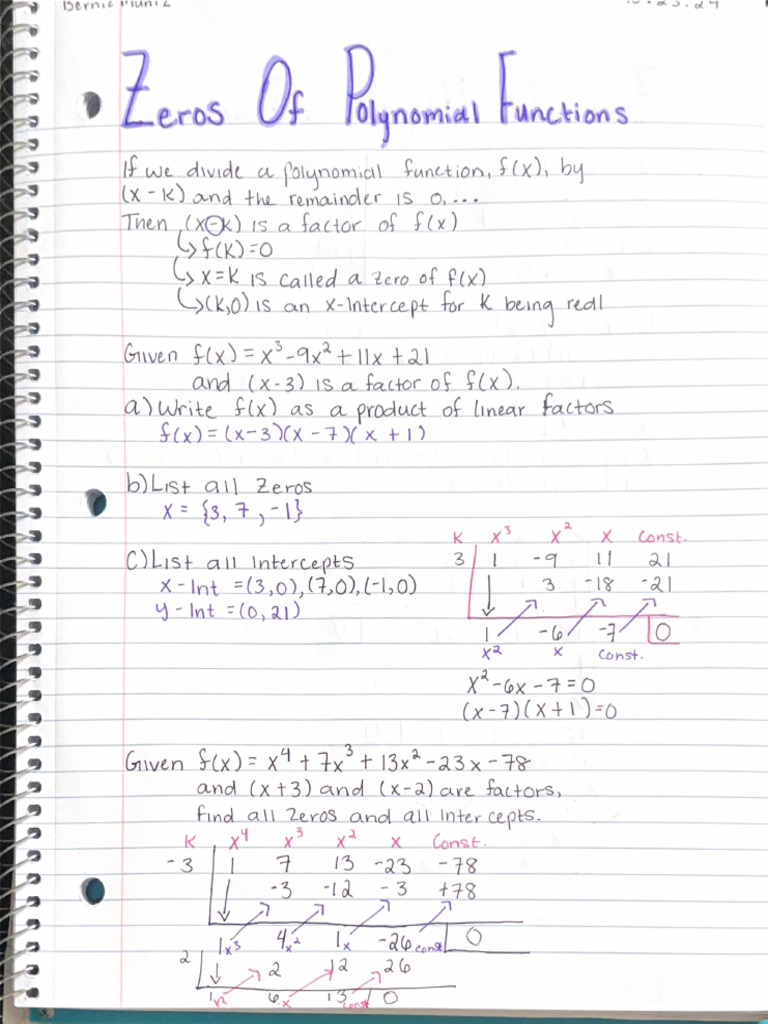 Zeros Of Polynomial Functions
If we divide a polynomial function, f(x), by
(x - k) and the remainder is 0,...
Then (x-k) is a factor of f(x)
↳ f(k)=0
↳ x=k is called a zero of f(x)
↳ (k,0) is an x-intercept for k being real
Given f(x) = x³-9x²+11x+21
and (x-3) is a factor of f(x).
a) Write f(x) as a product of linear factors
f(x) = (x-3)(x-7)(x+1)
b) List all zeros
x = {3, 7, -1}
c) List all intercepts
x-Int = (3,0), (7,0), (-1,0)
y-Int = (0,21)
k x³ x² x Const.
3 1 -9 11 21
↓ 3 -18 -21
1 -6 -7 0
x² x const.
x²-6x-7=0
(x-7)(x+1)=0
Given f(x) = x⁴+7x³+13x²-23x-78
and (x+3) and (x-2) are factors,
find all zeros and all intercepts.
k x⁴ x³ x² x Const.
-3 1 7 13 -23 -78
↓ -3 -12 -3 +78
1x³ 4x² 1x -26 const 0
2 ↓ 2 12 26
1 6x 13 const 0